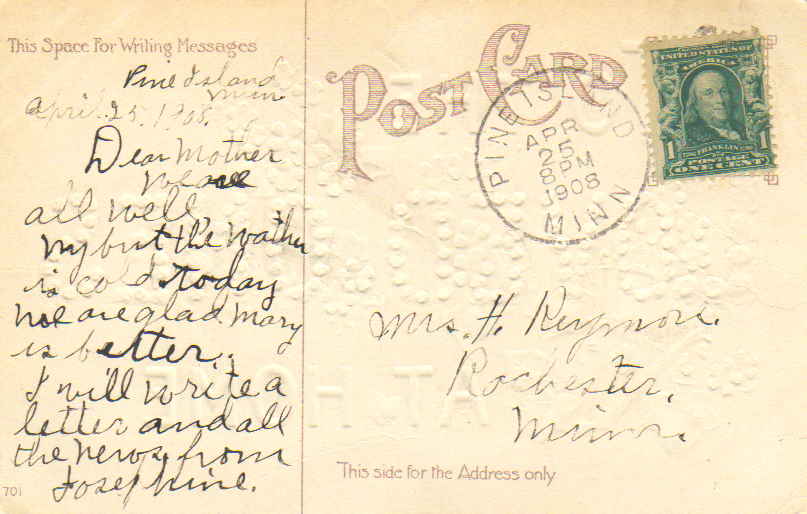 This Space For Writing Messages
Pine Island
Minn
April. 25. 1908.
Dear Mother
We are
all well,
but the wather
is cold today
We are glad Mary
is better.
I will write a
letter and all
the news from
Josephine.
701
POST CARD
PINE ISLAND
APR
25
8 PM
1908
MINN
UNITED STATES OF
AMERICA
1 FRANKLIN 1
POSTAGE
ONE CENT
Mrs. H.
Rochester,
Minn.
AT HOME
This side for the Address only